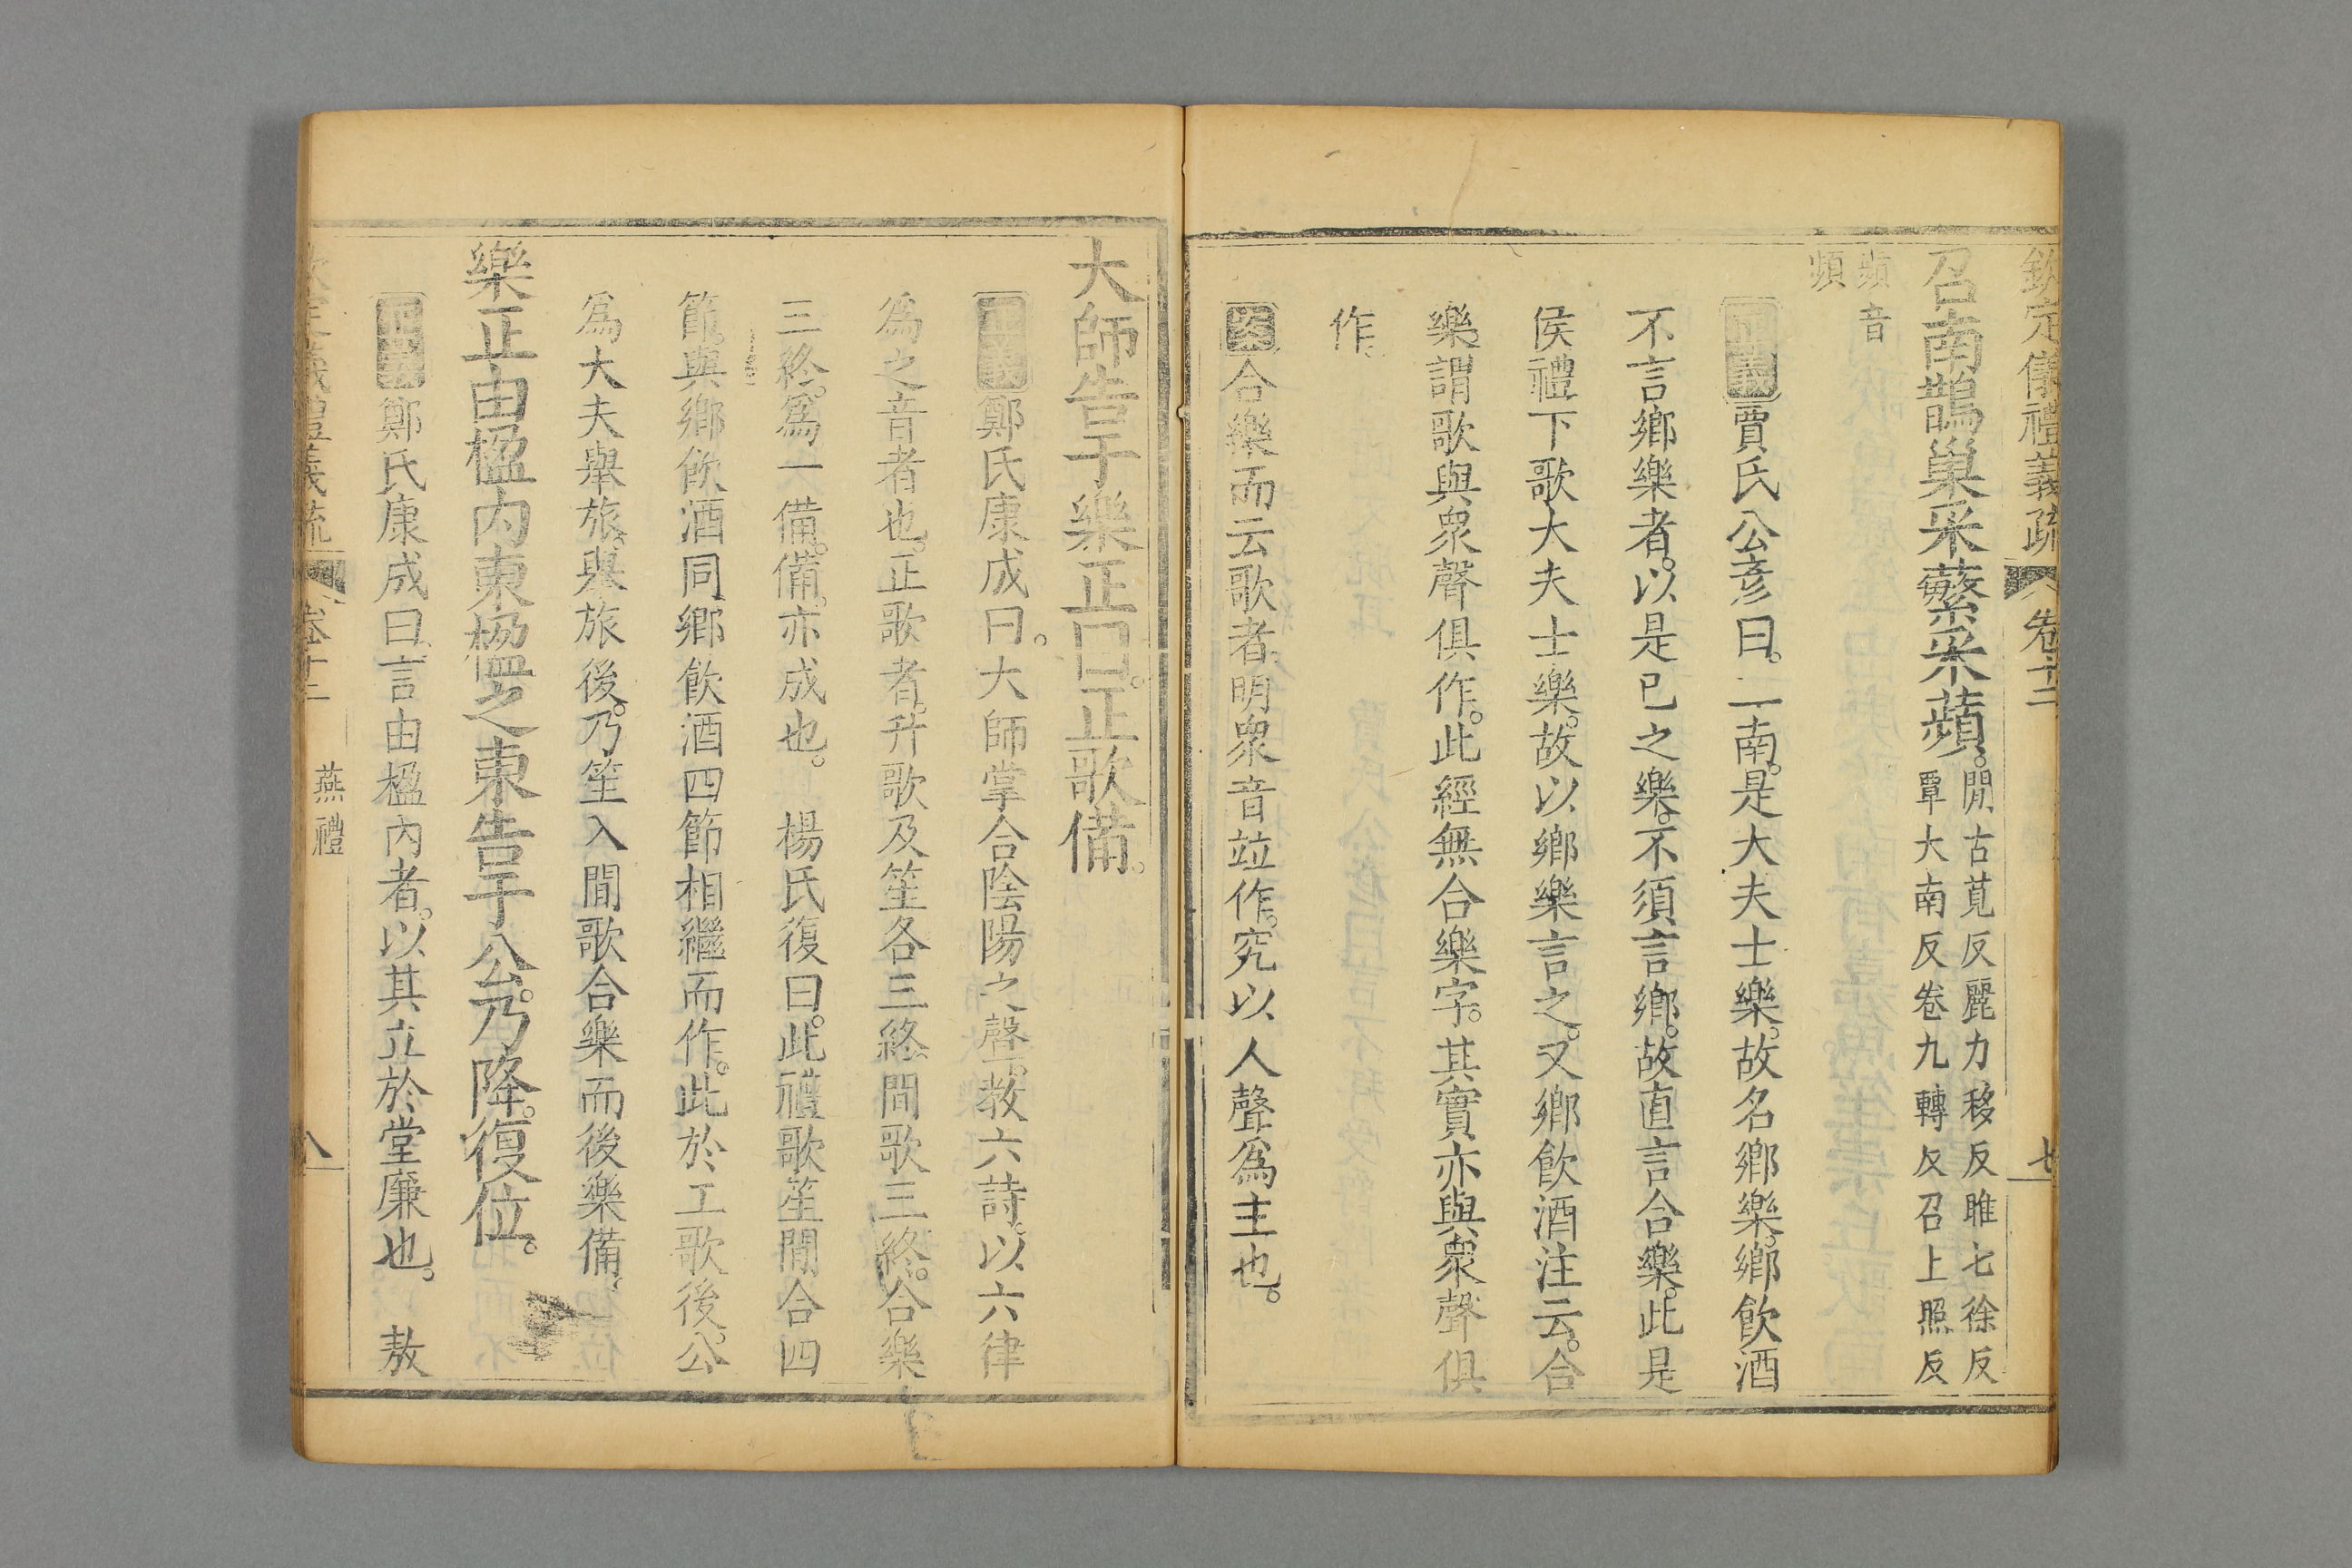 欽定儀禮義疏 卷十二 七
召南鵲巢采蘩采蘋。閒古莧反麗力移反雎七徐反
覃大南反卷九轉反召上照反
蘋音
頻
正義賈氏公彥曰。二南。是大夫士樂。故名鄉樂。鄉飲酒
不言鄉樂者。以是已之樂。不須言鄉。故直言合樂。此是
侯禮下歌大夫士樂。故以鄉樂言之。又鄉飲酒注云。合
樂。謂歌與眾聲俱作。此經無合樂字。其實亦與眾聲俱
作。
案合樂而云歌者。明眾音竝作。究以人聲為主也。
大師告于樂正曰。正歌備。
正義鄭氏康成曰。大師掌合陰陽之聲。教六詩。以六律
為之音者也。正歌者。升歌及笙各三終。間歌三終。合樂
三終。為一備。備。亦成也。 楊氏復曰。此禮歌笙間合四
節。與鄉飲酒同。鄉飲酒四節相繼而作。此於工歌後。公
為大夫舉旅。與旅後。乃笙入間歌合樂而後樂備。
樂正由楹內東楹之東告于公。乃降。復位。
正義鄭氏康成曰。言由楹內者。以其立於堂廉也。 敖
欽定儀禮義疏 卷十二 燕禮 八